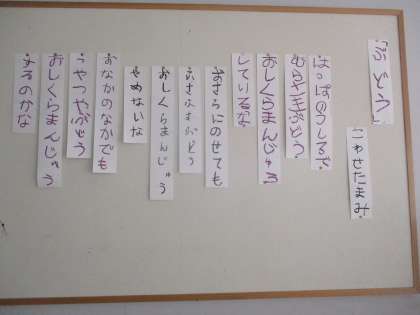 「ぶどう」
こわせたまみ
はっぱのうしろで
むらさきぶどう
おしくらまんじゅう
しているな
おさらにのせても
ふさふさぶどう
おしくらまんじゅう
やめないな
おなかのなかでも
つやつやぶどう
おしくらまんじゅう
するのかな